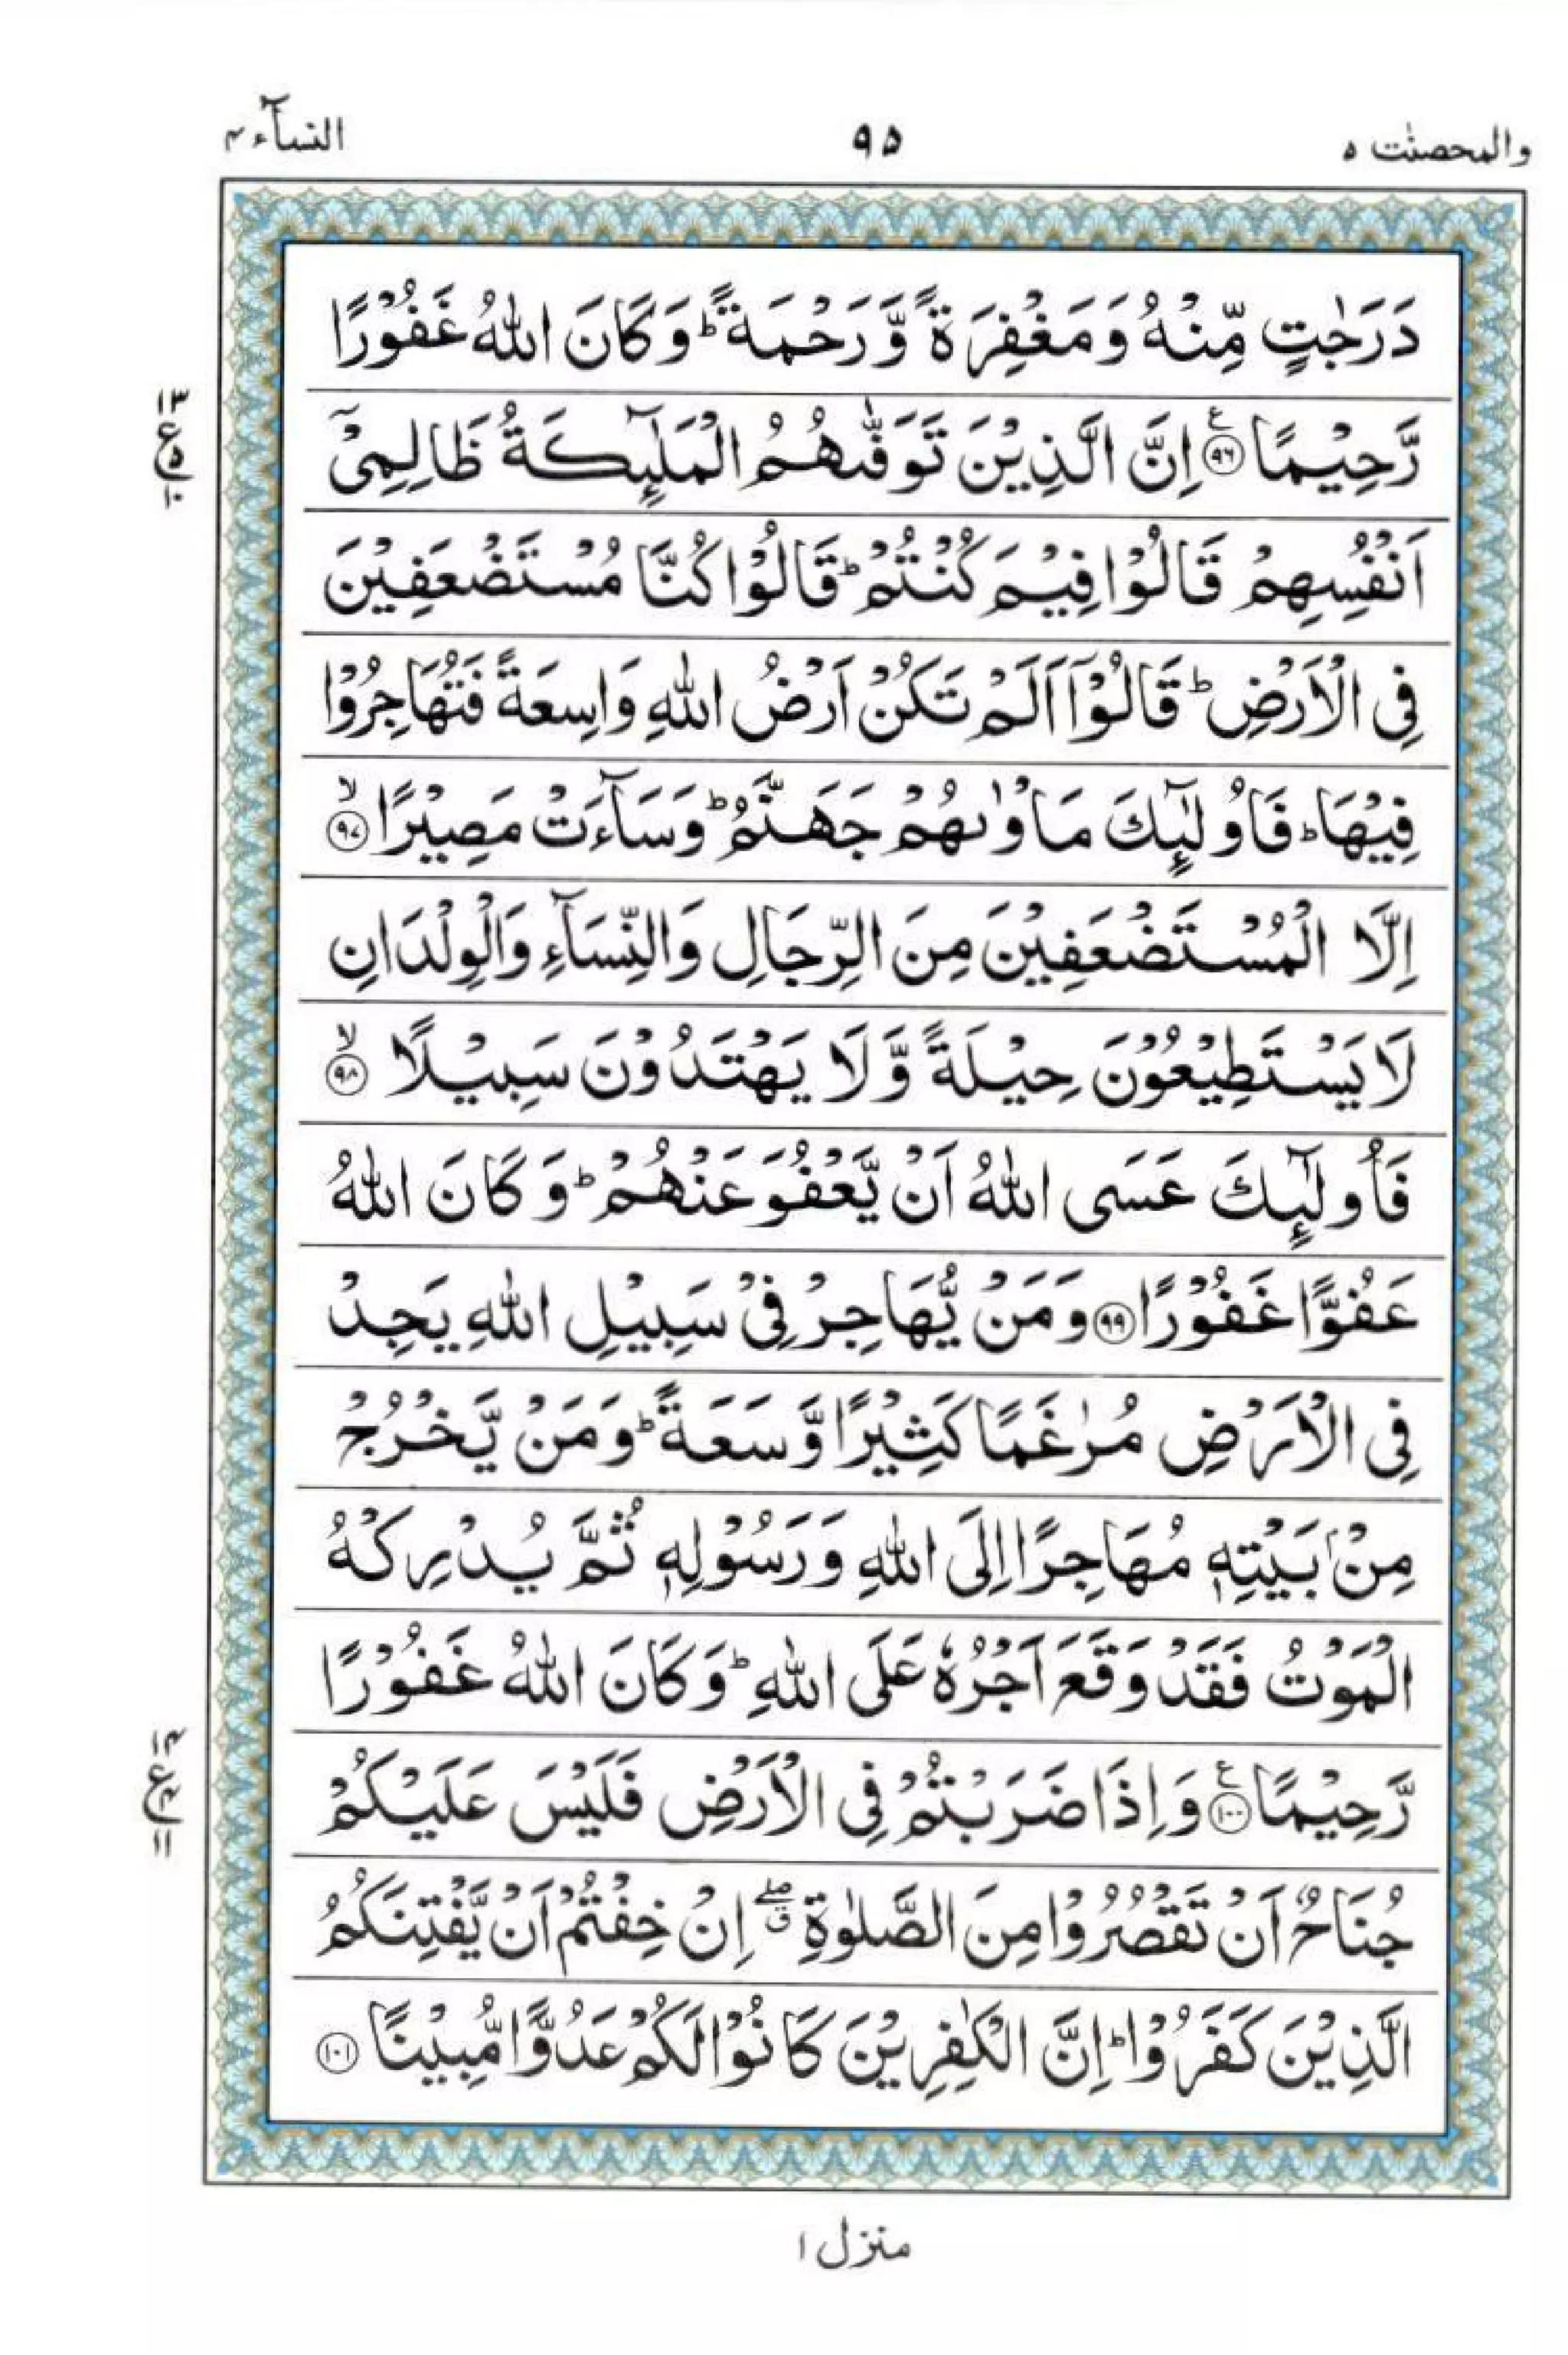 والمحصنٰت ۵
۹۵
النسآء ۴
دَرَجٰتٍ مِّنْهُ وَمَغْفِرَةً وَّرَحْمَةً ؕ وَكَانَ اللّٰهُ غَفُوْرًا
رَّحِیْمًا ﴿۹۶﴾ ع اِنَّ الَّذِیْنَ تَوَفّٰىهُمُ الْمَلٰٓىِٕكَةُ ظَالِمِیْۤ
۱۳ ع ۵ ۱۰
اَنْفُسِهِمْ قَالُوْا فِیْمَ كُنْتُمْ ؕ قَالُوْا كُنَّا مُسْتَضْعَفِیْنَ
فِی الْاَرْضِ ؕ قَالُوْۤا اَلَمْ تَكُنْ اَرْضُ اللّٰهِ وَاسِعَةً فَتُهَاجِرُوْا
فِیْهَا ؕ فَاُولٰٓىِٕكَ مَاْوٰىهُمْ جَهَنَّمُ ؕ وَسَآءَتْ مَصِیْرًا ﴿۹۷﴾ ۙ
اِلَّا الْمُسْتَضْعَفِیْنَ مِنَ الرِّجَالِ وَالنِّسَآءِ وَالْوِلْدَانِ
لَا یَسْتَطِیْعُوْنَ حِیْلَةً وَّلَا یَهْتَدُوْنَ سَبِیْلًا ﴿۹۸﴾ ۙ
فَاُولٰٓىِٕكَ عَسَی اللّٰهُ اَنْ یَّعْفُوَ عَنْهُمْ ؕ وَكَانَ اللّٰهُ
عَفُوًّا غَفُوْرًا ﴿۹۹﴾ وَمَنْ یُّهَاجِرْ فِیْ سَبِیْلِ اللّٰهِ یَجِدْ
فِی الْاَرْضِ مُرٰغَمًا كَثِیْرًا وَّسَعَةً ؕ وَمَنْ یَّخْرُجْ
مِنْۢ بَیْتِهٖ مُهَاجِرًا اِلَی اللّٰهِ وَرَسُوْلِهٖ ثُمَّ یُدْرِكْهُ
الْمَوْتُ فَقَدْ وَقَعَ اَجْرُهٗ عَلَی اللّٰهِ ؕ وَكَانَ اللّٰهُ غَفُوْرًا
رَّحِیْمًا ﴿۱۰۰﴾ ع وَاِذَا ضَرَبْتُمْ فِی الْاَرْضِ فَلَیْسَ عَلَیْكُمْ
۱۴ ع ۴ ۱۱
جُنَاحٌ اَنْ تَقْصُرُوْا مِنَ الصَّلٰوةِ ۖۗ اِنْ خِفْتُمْ اَنْ یَّفْتِنَكُمُ
الَّذِیْنَ كَفَرُوْا ؕ اِنَّ الْكٰفِرِیْنَ كَانُوْا لَكُمْ عَدُوًّا مُّبِیْنًا ﴿۱۰۱﴾
منزل ۱